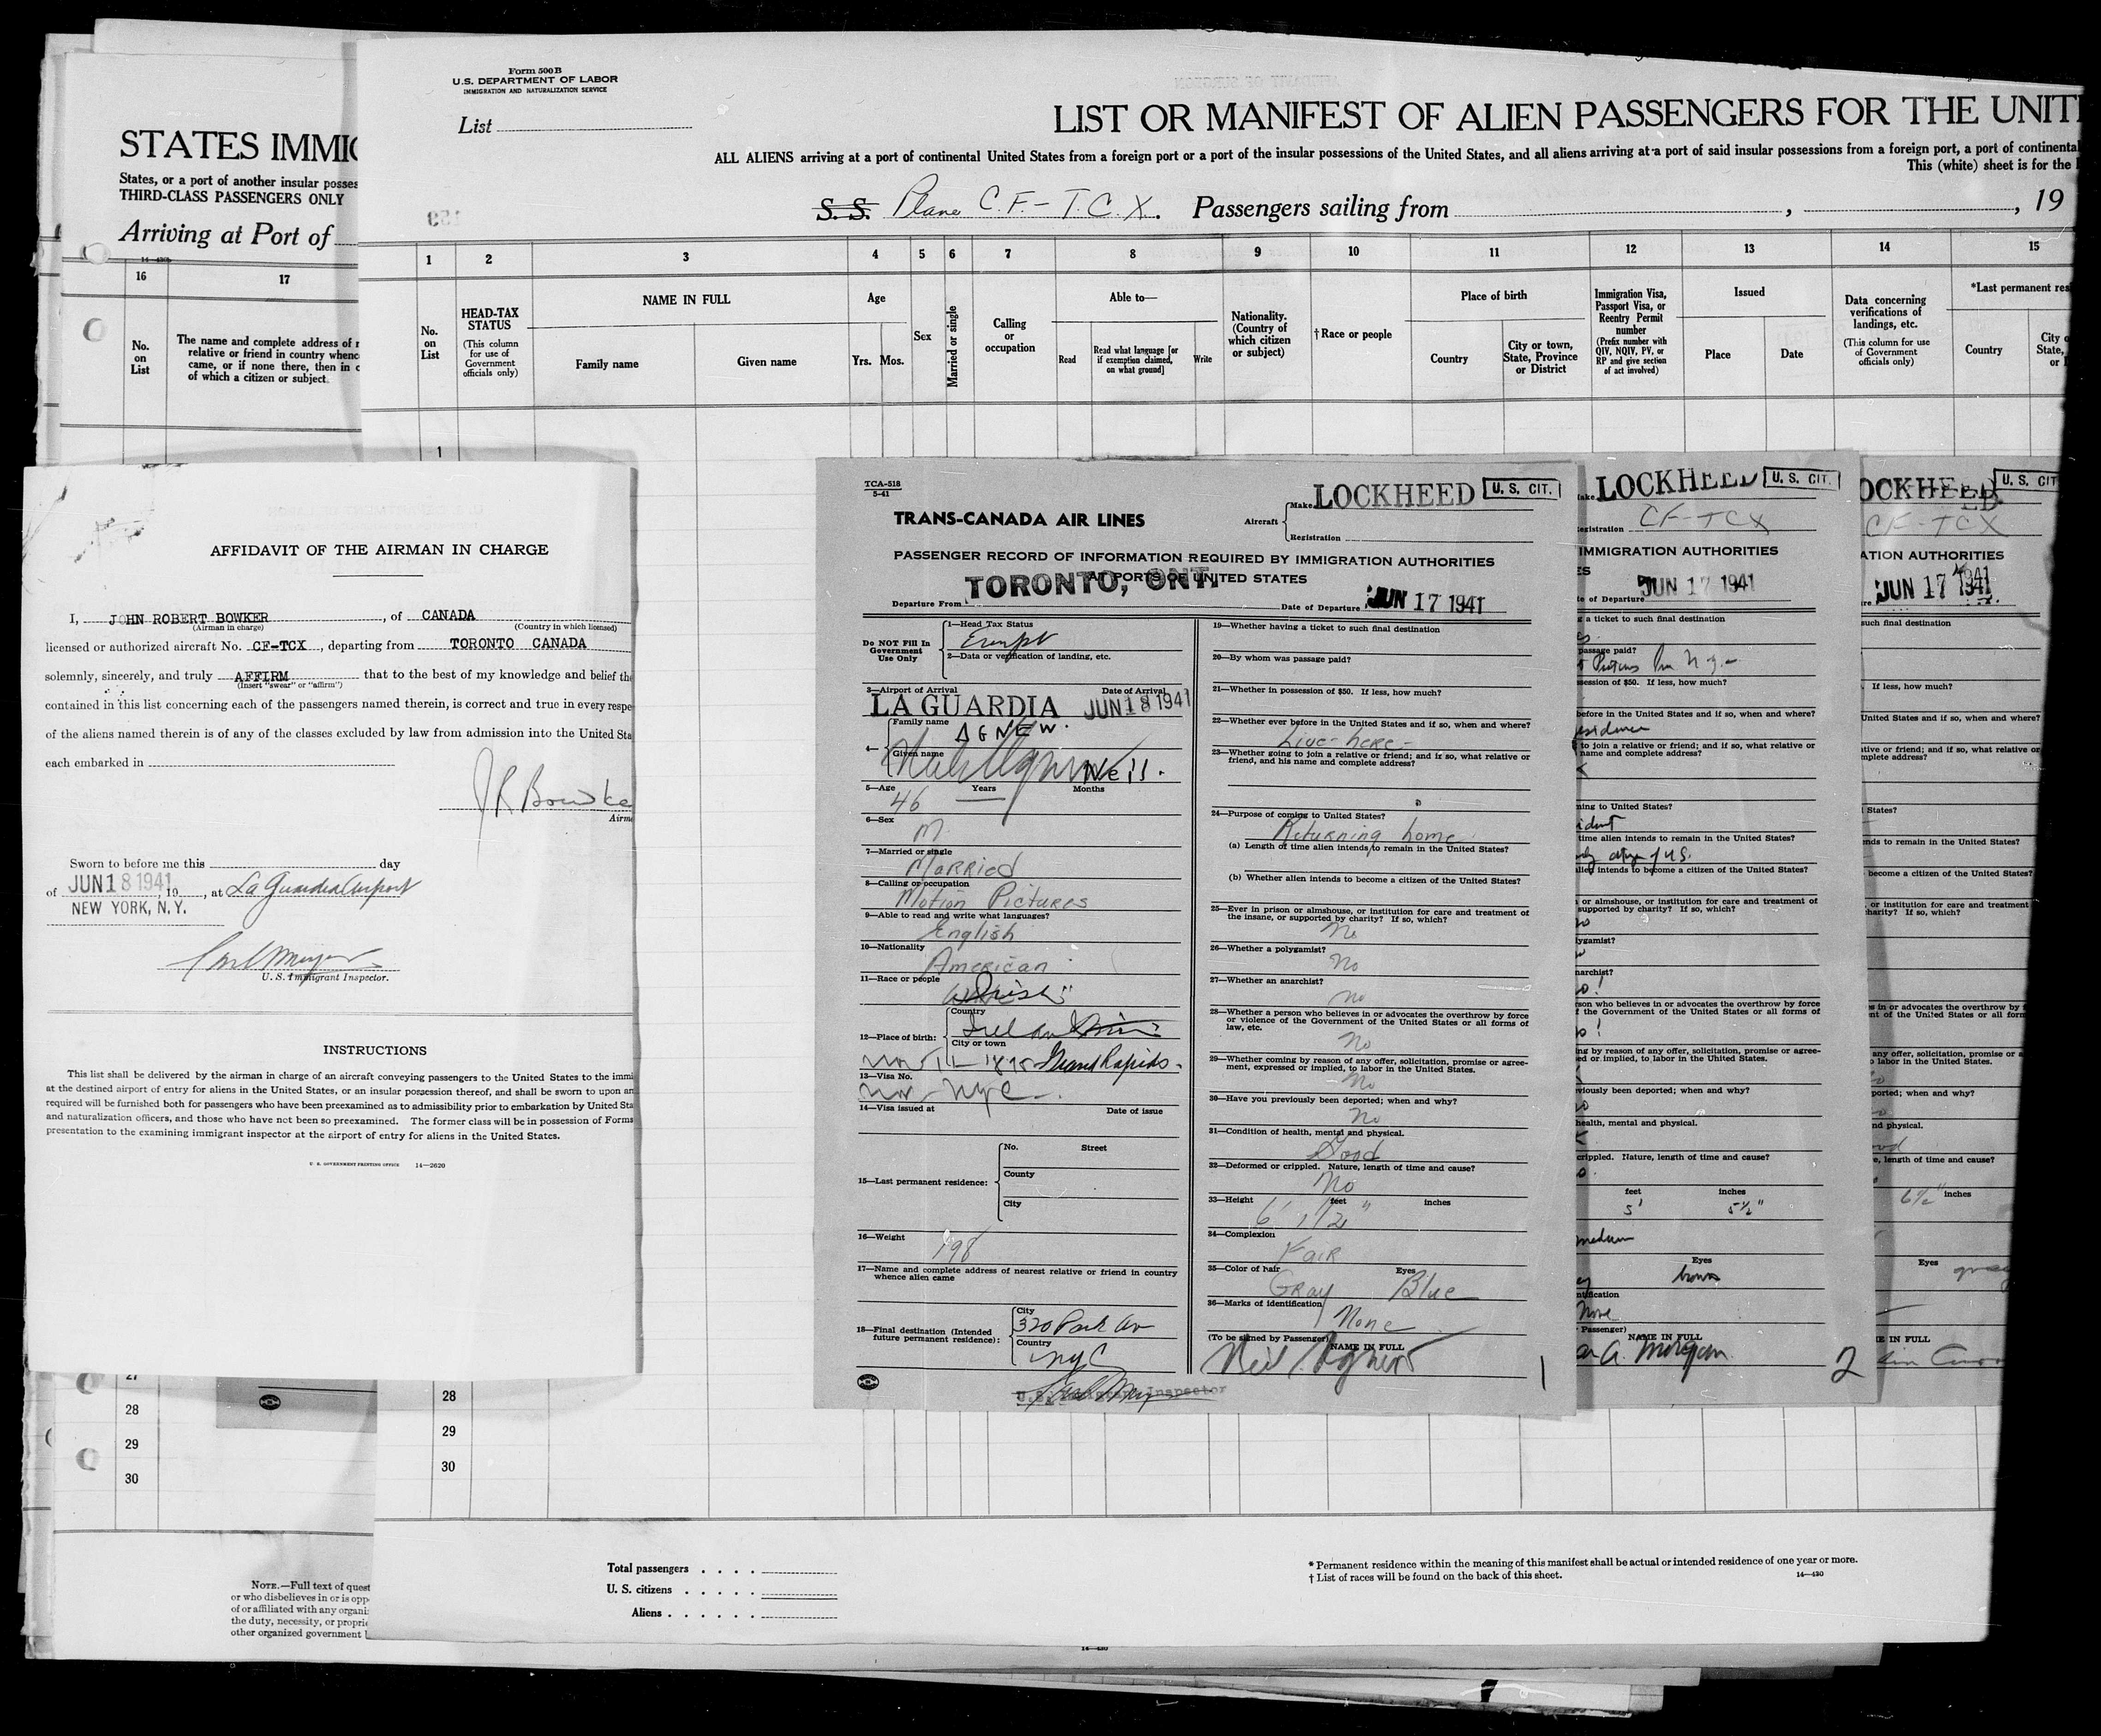 Form 500 B
U.S. DEPARTMENT OF LABOR
IMMIGRATION AND NATURALIZATION SERVICE
List
LIST OR MANIFEST OF ALIEN PASSENGERS FOR THE UNIT
ALL ALIENS arriving at a port of continental United States from a foreign port or a port of the insular possessions of the United States, and all aliens arriving at a port of said insular possessions from a foreign port, a port of continental
This (white) sheet is for the
S. S. Plane C.F.-T.C.X. Passengers sailing from , , 19
STATES IMMIG
States, or a port of another insular posses
THIRD-CLASS PASSENGERS ONLY
Arriving at Port of
16 17
No. on List
The name and complete address of
relative or friend in country whence
came, or if none there, then in c
of which a citizen or subject.
1 2 3 4 5 6 7 8 9 10 11 12 13 14 15
No. on List
HEAD-TAX STATUS
(This column for use of Government officials only)
NAME IN FULL
Family name Given name
Age
Yrs. Mos.
Sex
Married or single
Calling or occupation
Able to—
Read
Read what language [or if exemption claimed, on what ground]
Write
Nationality. (Country of which citizen or subject)
†Race or people
Place of birth
Country
City or town, State, Province or District
Immigration Visa, Passport Visa, or Reentry Permit number
(Prefix number with QIV, NQIV, PV, or RP and give section of act involved)
Issued
Place Date
Data concerning verifications of landings, etc.
(This column for use of Government officials only)
*Last permanent res
Country
City o
State,
1
AFFIDAVIT OF THE AIRMAN IN CHARGE
I, JOHN ROBERT BOWKER , of CANADA
(Airman in charge) (Country in which licensed)
licensed or authorized aircraft No. CF-TCX , departing from TORONTO CANADA
solemnly, sincerely, and truly AFFIRM that to the best of my knowledge and belief the
(Insert "swear" or "affirm")
contained in this list concerning each of the passengers named therein, is correct and true in every respe
of the aliens named therein is of any of the classes excluded by law from admission into the United Sta
each embarked in
J R Bowke
Airm
Sworn to before me this day
of JUN 18 1941, 19 , at La Guardia Airport
NEW YORK, N.Y.
U. S. Immigrant Inspector.
INSTRUCTIONS
This list shall be delivered by the airman in charge of an aircraft conveying passengers to the United States to the immi
at the destined airport of entry for aliens in the United States, or an insular possession thereof, and shall be sworn to upon ar
required will be furnished both for passengers who have been preexamined as to admissibility prior to embarkation by United Sta
and naturalization officers, and those who have not been so preexamined. The former class will be in possession of Forms
presentation to the examining immigrant inspector at the airport of entry for aliens in the United States.
U. S. GOVERNMENT PRINTING OFFICE 14—2620
TCA-518
5-41
TRANS-CANADA AIR LINES
Aircraft
Make LOCKHEED U. S. CIT.
Registration
PASSENGER RECORD OF INFORMATION REQUIRED BY IMMIGRATION AUTHORITIES
AT PORTS OF UNITED STATES
Departure From TORONTO, ONT. Date of Departure JUN 17 1941
Do NOT Fill In
Government
Use Only
1—Head Tax Status
Exempt
2—Data or verification of landing, etc.
3—Airport of Arrival Date of Arrival
LA GUARDIA JUN 18 1941
4—
Family name AGNEW.
Given name Neil.
5—Age Years Months
46
6—Sex
M
7—Married or single
Married
8—Calling or occupation
Motion Pictures
9—Able to read and write what languages?
English
10—Nationality
American
11—Race or people
Irish
12—Place of birth:
Country
City or town
Grand Rapids
13—Visa No.
14—Visa issued at Date of issue
15—Last permanent residence:
No. Street
County
City
16—Weight
198
17—Name and complete address of nearest relative or friend in country
whence alien came
18—Final destination (Intended
future permanent residence):
City
320 Park Av
Country
NYC
U.S. Immigrant Inspector
19—Whether having a ticket to such final destination
20—By whom was passage paid?
21—Whether in possession of $50. If less, how much?
22—Whether ever before in the United States and if so, when and where?
Live here-
23—Whether going to join a relative or friend; and if so, what relative or
friend, and his name and complete address?
24—Purpose of coming to United States?
Returning home
(a) Length of time alien intends to remain in the United States?
(b) Whether alien intends to become a citizen of the United States?
25—Ever in prison or almshouse, or institution for care and treatment of
the insane, or supported by charity? If so, which?
No
26—Whether a polygamist?
No
27—Whether an anarchist?
no
28—Whether a person who believes in or advocates the overthrow by force
or violence of the Government of the United States or all forms of
law, etc.
No
29—Whether coming by reason of any offer, solicitation, promise or agree-
ment, expressed or implied, to labor in the United States.
No
30—Have you previously been deported; when and why?
No
31—Condition of health, mental and physical.
Good
32—Deformed or crippled. Nature, length of time and cause?
No
33—Height feet inches
6' 1/2"
34—Complexion
Fair
35—Color of hair Eyes
Gray Blue
36—Marks of identification
None
(To be signed by Passenger) NAME IN FULL
Neil Agnew
1
LOCKHEED U. S. CIT.
egistration CF-TCX
IMMIGRATION AUTHORITIES
ES
te of Departure JUN 17 1941
g a ticket to such final destination
passage paid?
session of $50. If less, how much?
before in the United States and if so, when and where?
to join a relative or friend; and if so, what relative or
name and complete address?
ming to United States?
time alien intends to remain in the United States?
alien intends to become a citizen of the United States?
or almshouse, or institution for care and treatment of
supported by charity? If so, which?
lygamist?
narchist?
no!
rson who believes in or advocates the overthrow by force
f the Government of the United States or all forms of
no!
ng by reason of any offer, solicitation, promise or agree-
ed or implied, to labor in the United States.
viously been deported; when and why?
health, mental and physical.
crippled. Nature, length of time and cause?
feet inches
5' 5½"
medium
Eyes
brown
ntification
None
Passenger) NAME IN FULL
A. Morgan
2
OCKHEED U. S. CIT
CF-TCX
ATION AUTHORITIES
JUN 17 1941
such final destination
If less, how much?
United States and if so, when and where?
ative or friend; and if so, what relative or
mplete address?
States?
nds to remain in the United States?
become a citizen of the United States?
, or institution for care and treatment
charity? If so, which?
s in or advocates the overthrow by f
nt of the United States or all form
any offer, solicitation, promise or a
o labor in the United States.
ported; when and why?
nd physical.
e, length of time and cause?
6½" inches
Eyes gray
E IN FULL
27
28
29
30
28
29
30
NOTE.—Full text of quest
or who disbelieves in or is opp
of or affiliated with any organi
the duty, necessity, or proprie
other organized government
Total passengers . . . .
U. S. citizens . . . . .
Aliens . . . . . .
* Permanent residence within the meaning of this manifest shall be actual or intended residence of one year or more.
† List of races will be found on the back of this sheet.
14—430